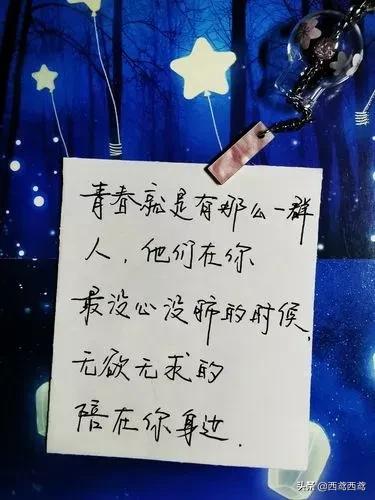 青春就是有那么一群
人，他们在你
最没心没肺的时候，
无欲无求的
陪在你身边.
头条@西鸢西鸢